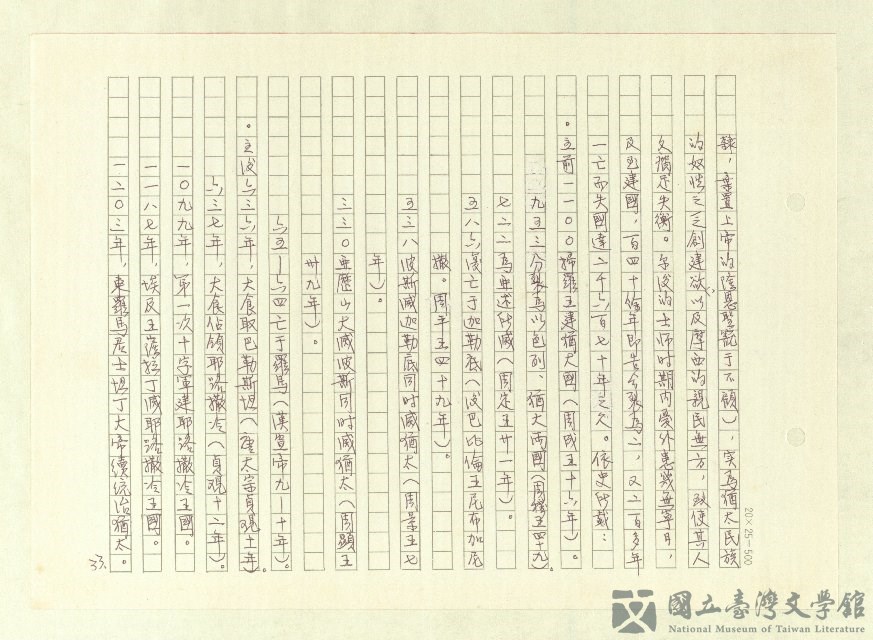 隸，棄置上帝的隆恩聖寵于不顧），実為猶太民族
的奴性之乏創建欲，以及摩西的親民無方，致使其人
久獨足失衡。尔後的士师时期内憂外患幾無寧日，
及至建國，百四十餘年即告分裂為二，又二百多年
一亡而失國達二千六百七十年之久。依史所載：
。主前一一00掃羅王建猶大國（周成王十六年）。
九五三分裂為以色列、猶大兩國（周穆王四十九）。
七二二為亜述所滅（周定王廿一年）。
五八六復亡于迦勒底（後巴比倫王尼布加尼
撒。周平王四十九年）。
五三八波斯滅迦勒底同时滅猶太（周景王七
年）。
三三0亜歷山大滅波斯同时滅猶太（周顯王
卅九年）。
六五—六四亡于羅馬（漢宣帝九—十年）。
。主後六三六年，大食取巴勒斯坦（唐太宗貞观十年）。
六三七年，大食佔領耶路撒冷（貞观十二年）。
一0九九年，第一次十字軍建耶路撒冷王國。
一一八七年，埃及王薩拉丁滅耶路撒冷王國。
一二0三年，東羅馬君士坦丁大帝續統治猶太。
33.
20×25=500
國立臺灣文學館
National Museum of Taiwan Literature